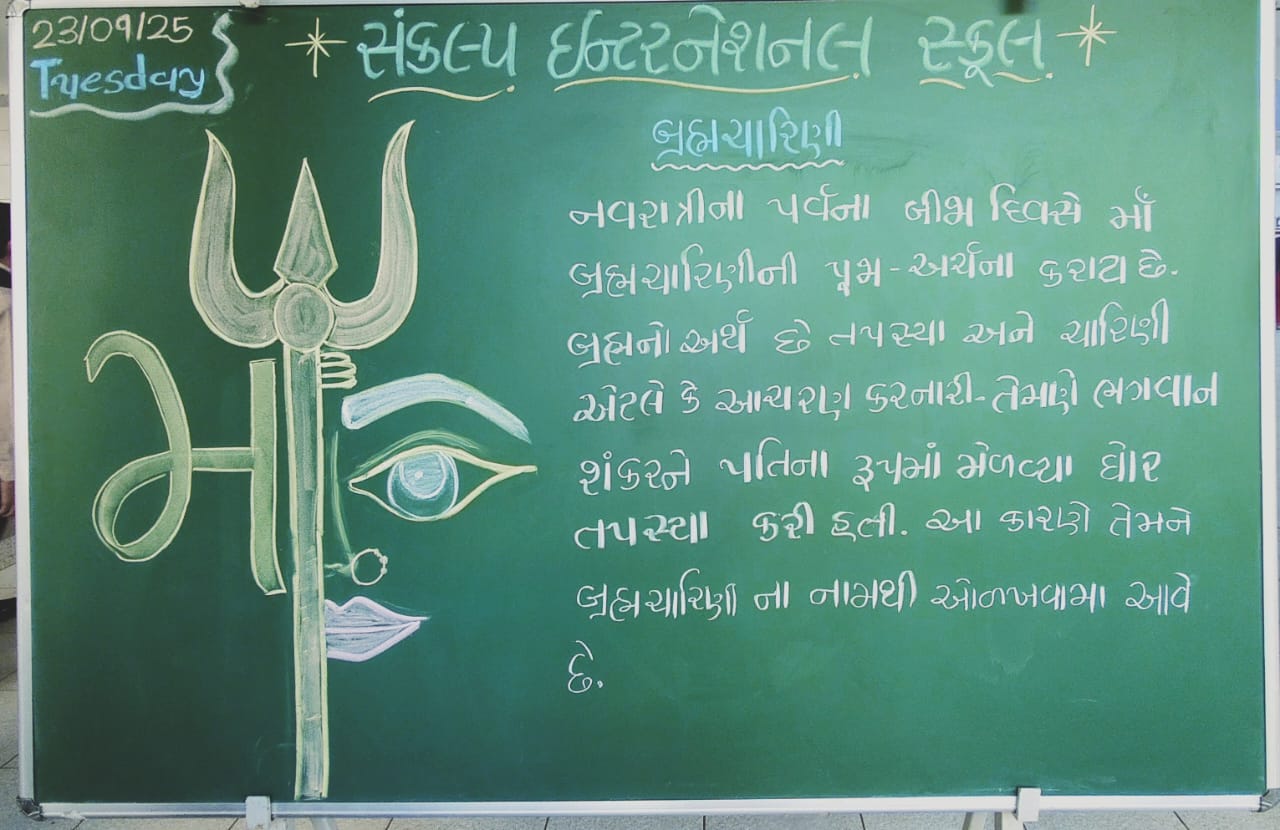 23/09/25
Tuesday
સંકલ્પ ઇન્ટરનેશનલ સ્કૂલ
બ્રહ્મચારિણી
નવરાત્રીના પર્વના બીજા દિવસે માઁ
બ્રહ્મચારિણીની પૂજા-અર્ચના કરાય છે.
બ્રહ્મનો અર્થ છે તપસ્યા અને ચારિણી
એટલે કે આચરણ કરનારી-તેમણે ભગવાન
શંકરને પતિના રૂપમાં મેળવ્યા ઘોર
તપસ્યા કરી હતી. આ કારણે તેમને
બ્રહ્મચારિણી ના નામથી ઓળખવામા આવે
છે.
મા